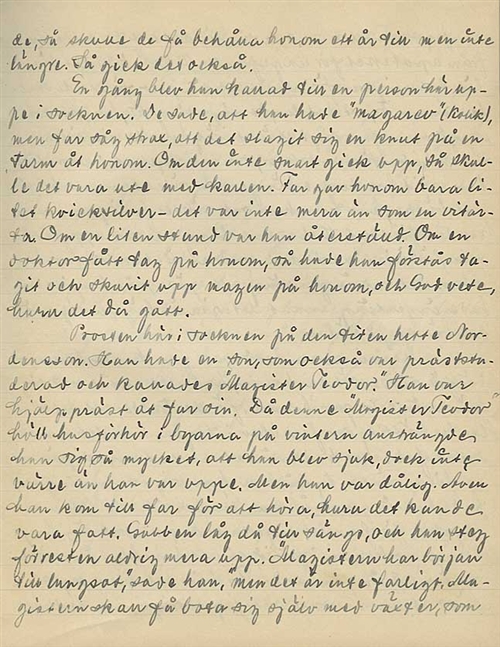 de, så skulle de få behålla honom ett år till men inte
längre. Så gick det också.
En gång blev han kallad till en person här up-
pe i socknen. De sade, att han hade "magarev" (kolik),
men far såg strax, att det slagit sig en knut på en
tarm åt honom. Om den inte snart gick upp, så skul-
le det vara ute med karlen. Far gav honom bara li-
tet kvicksilver - det var inte mera än som en vitär-
ta. Om en liten stund var han återställd. Om en
doktor fått tag på honom, så hade han förstås ta-
git och skurit upp magen på honom, och Gud vete,
huru det då gått.
Prosten här i socknen på den tiden hette Nor-
densson. Han hade en son, som också var präststu-
derad och kallades "Magister Teodor." Han var
hjälppräst åt far sin. Då denne "Magister Teodor"
höll husförhör i byarna på vintern ansträngde
han sig så mycket, att han blev sjuk, dock inte
värre än han var uppe. Men han var dålig. Även
han kom till far för att höra, huru det kunde
vara fatt. Gubben låg då till sängs, och han steg
förresten aldrig mera upp. "Magistern har början
till lungsot," sade han, "men det är inte farligt. Ma-
gistern skall få bota sig själv med växter, som